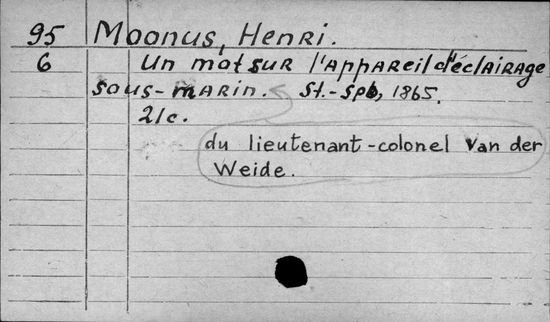 95 Moonus, Henri.
6 Un mot sur l'appareil d'éclairage
sous-marin. St.-Spb, 1865.
21c.
du lieutenant-colonel Van der
Weide.